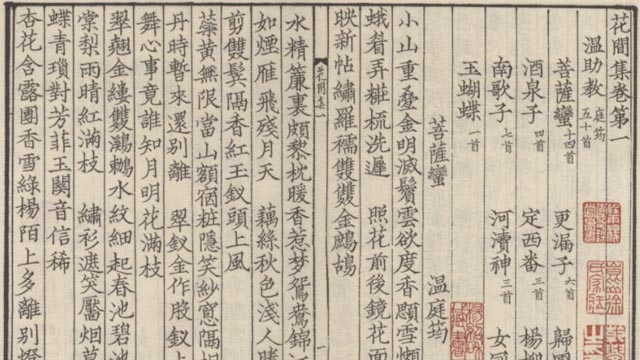 花間集卷第一
溫助教 庭筠 五十首
菩薩蠻十四首 更漏子六首 歸
酒泉子四首 定西番三首 楊柳
南歌子七首 河瀆神三首 女
玉蝴蝶一首
菩薩蠻 溫庭筠
小山重疊金明滅鬢雲欲度香顋雪懶
蛾眉弄糚梳洗遲 照花前後鏡花
映新帖繡羅襦雙雙金鷓鴣
花間集一
水精簾裏頗黎枕暖香惹夢鴛鴦錦江
如煙雁飛殘月天 藕絲秋色淺人勝
剪雙鬢隔香紅玉釵頭上風
蘂黃無限當山額宿粧隱笑紗窻隔相
丹時暫來還別離 翠釵金作股釵
舞心事竟誰知月明花滿枝
翠翹金縷雙鸂鶒水紋細起春池碧池
棠梨雨晴紅滿枝 繡衫遮笑靨烟草
蝶青瑣對芳菲玉關音信稀
杏花含露團香雪綠楊陌上多離別燈